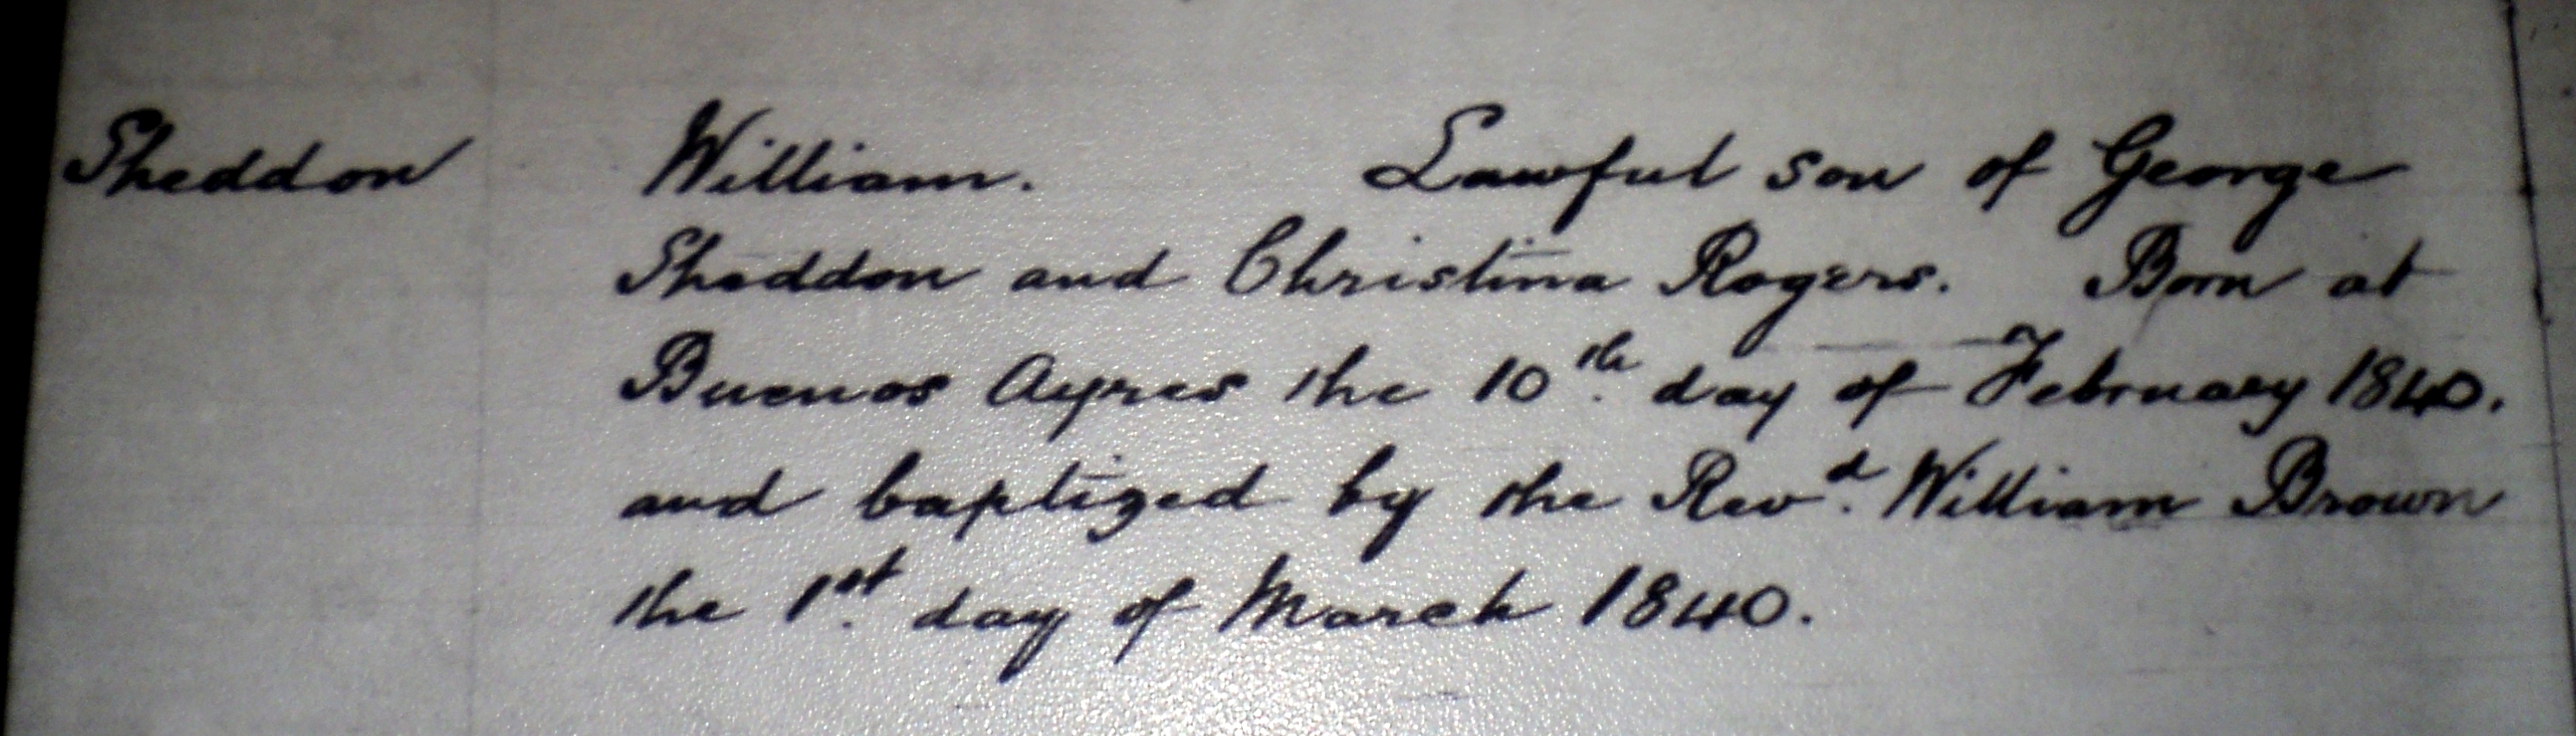 Sheddon William. Lawful son of George
Sheddon and Christina Rogers. Born at
Buenos Ayres the 10th. day of February 1840.
and baptized by the Revd. William Brown
the 1st. day of March 1840.